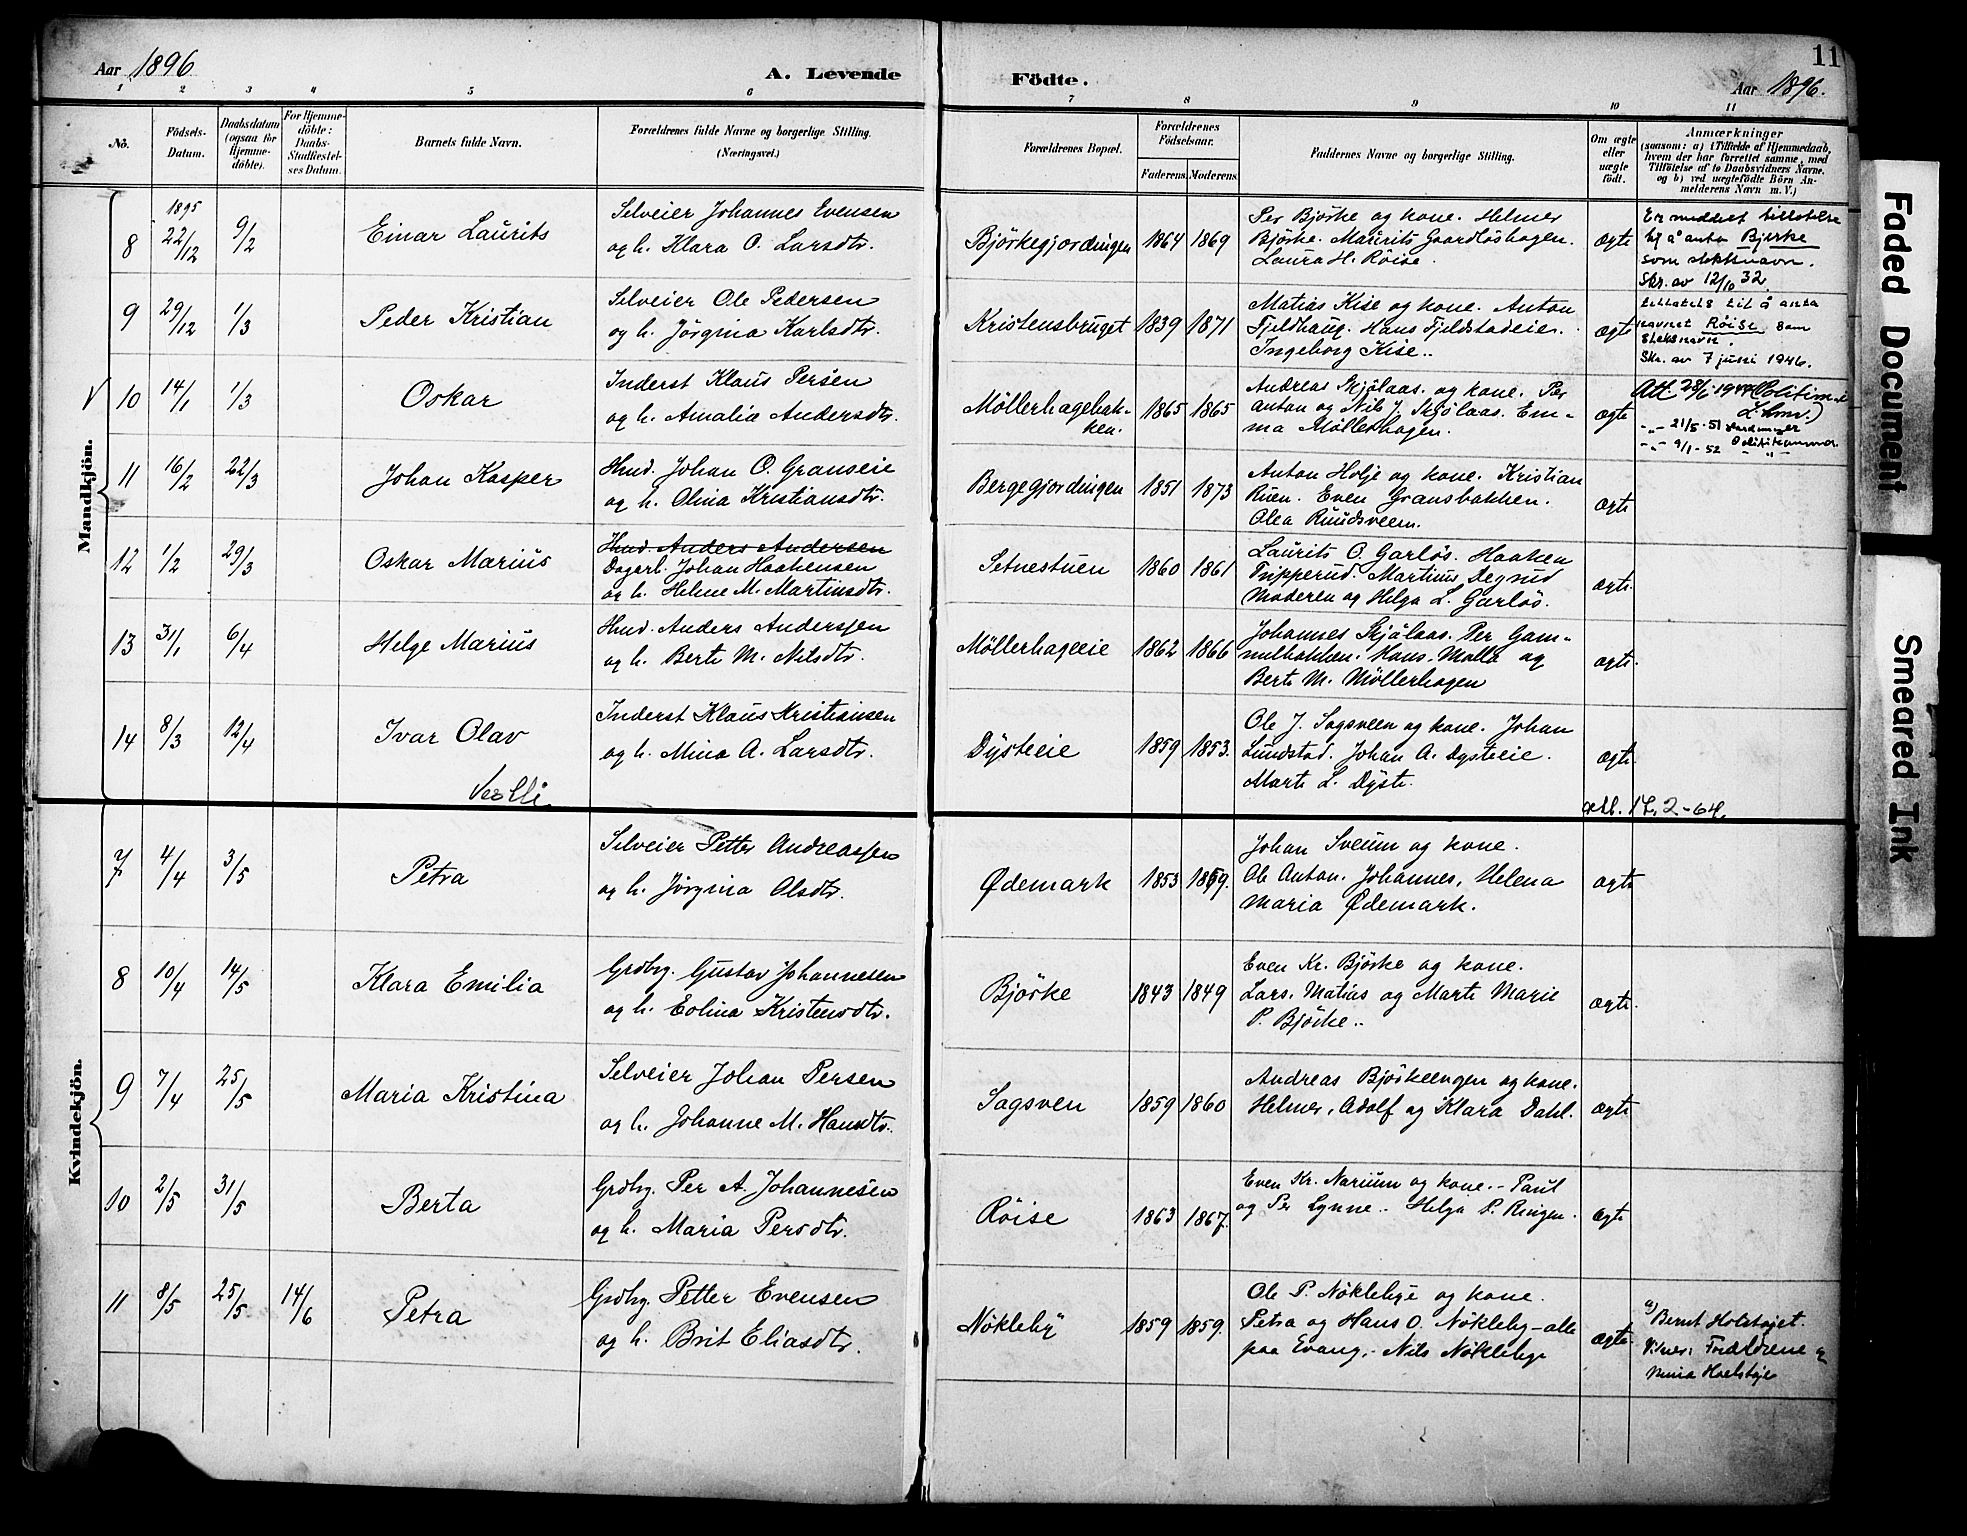 Aar 1896
A. Levende
Födte.
Aar 1896.
11
1 2 3 4 5 6 7 8 9 10 11
No.
Födsels-
Datum.
Daabsdatum
(ogsaa for
Hjemme-
döbte).
For Hjemme-
döbte:
Daabs-
Stadfæstel-
ses Datum.
Barnets fulde Navn.
Forældrenes fulde Navne og borgerlige Stilling.
(Næringsvei.)
Forældrenes Bopæl.
Forældrenes
Födselsaar.
Faderens. Moderens.
Faddernes Navne og borgerlige Stilling.
Om ægte
eller
uægte
födt.
Anmærkninger
(saasom: a) i Tilfælde af Hjemmedaab,
hvem der har forrettet samme, med
Tilföielse af to Daabsvidners Navne,
og b) ved uægtefödte Börn An-
melderens Navn m. V.)
Mandkjön.
8 1895 22/12 9/2 Einar Laurits
Selveier Johannes Evensen
og h. Klara O. Larsdtr.
Björkegjordingen 1864 1869
Per Björke og kone. Helmer
Björke. Maurits Gaardløshagen.
Laura H. Röise.
ægte
Er meddelt tillatelse
til å anta Bjerke
som slektsnavn.
Skr. av 12/10 32.
9 29/12 1/3 Peder Kristian
Selveier Ole Pedersen
og h. Jörgina Karlsdtr.
Kristensbruget 1839 1871
Matias Kise og kone. Anton
Fjeldhaug. Hans Fjeldstadeier.
Ingeborg Kise..
ægte
tillatels til å anta
navnet Røise som
Skr. av 7 juni 1946.
10 14/1 1/3 Oskar
Inderst Klaus Persen
og h. Amalia Andersdtr.
Möllerhagebak-
ken. 1865 1865
Andreas Skjölaas. og kone. Per
Anton og Nils J. Skjölaas. Em-
ma Möllerhagen.
ægte
-"- 21/5-51
-"- 9/1-52
11 16/2 22/3 Johan Kasper
Hmd. Johan O. Granseie
og h. Olina Kristiansdtr.
Bergegjordingen 1851 1873
Anton Holje og kone. Kristian
Ruen. Even Gransbakken.
Olea Ruudsveen.
ægte
12 1/2 29/3 Oskar Marius
Hmd. Anders Andersen
Dagarb. Johan Haakensen
og h. Helene M. Martinsdtr.
Setnestuen 1860 1861
Laurits O. Garlös. Haaken
Tripperud. Martinus Degrud
Moderen og Helga L. Garlös.
ægte.
13 31/1 6/4 Helge Marius
Hmd. Anders Anderssen
og h. Berte M. Nilsdtr.
Möllerhageeie 1862 1866
Johannes Skjölaas. Per Gam-
melbakken. Hans. Malla og
Berte M. Möllerhagen
ægte.
14 8/3 12/4 Ivar Olav
Inderst Klaus Kristiansen
og h. Mina A. Larsdtr.
Dysteeie 1859 1853.
Ole J. Sagsveen og kone. Johan
Lundstad. Johan A. Dysteeie.
Marte L. Dyste.
ægte
17.2-64.
Kvindekjön.
7 4/4 3/5 Petra
Selveier Petter Andreassen
og h. Jörgina Olsdtr.
Ødemark 1853 1859.
Johan Sveum og kone.
Ole Anton. Johannes, Helena
Maria Ødemark.
ægte
8 10/4 14/5 Klara Emilia
Grdbrg. Gustav Johannesen
og h. Eolina Kristensdtr.
Björke 1843 1849
Even Kr. Björke og kone.
Lars. Matias og Marte Marie
P. Björke..
ægte.
9 7/4 25/5 Maria Kristina
Selveier Johan Persen
og h. Johanne M. Hansdtr.
Sagsven 1859 1860
Andreas Björkeengen og kone.
Helmer, Adolf og Klara Dahl.
ægte
10 2/5 31/5 Berta
Grdbrg. Per A. Johannesen
og h. Maria Persdtr.
Röise 1863 1867.
Even Kr. Narum og kone.- Paul
og Per Lynne.. Helga P. Ringen.
ægte
11 8/5 25/5 14/6 Petra
Grdbrg. Petter Evensen
og h. Brit Eliasdtr.
Nökleby 1859 1859.
Ole P. Nöklebye og kone.
Petra og Hans O. Nökleby - alle
paa Evang,- Nils Nöklebye
ægte.
a) Bernt Holstöjet.
Vidner: Forældrene og
Mina Holstöje
Faded Document
Smeared Ink